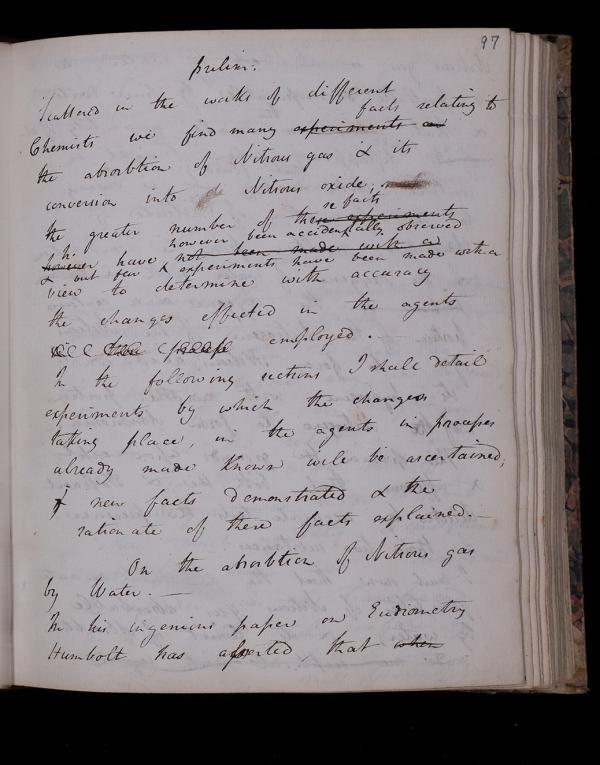 97
prelim:
Scattered in the works of different
facts relating to
Chemists we find many experiments on
the absorbtion of Nitrous gas & its
conversion into Nitrous oxide,
se facts
the greater number of these experiments
however been accidentally observed
however have not been made with a
& but few experiments have been made with a
view to determine with accuracy
the changes effected in the agents
employed. —
In the following sections I shall detail
experiments by which the changes
taking place, in the agents in processes
already made known will be ascertained;
new facts demonstrated & the
rationate of these facts explained. —
On the absorbtion of Nitrous gas
by Water. —
In his ingenious paper on Eudiometry
Humbolt has asserted, that when